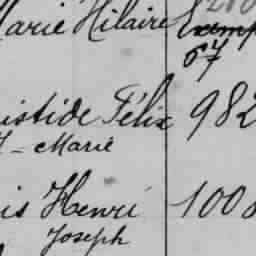 Marie Hilaire Exemp
67
istide Félix 982
Marie
is Henri 100
Joseph